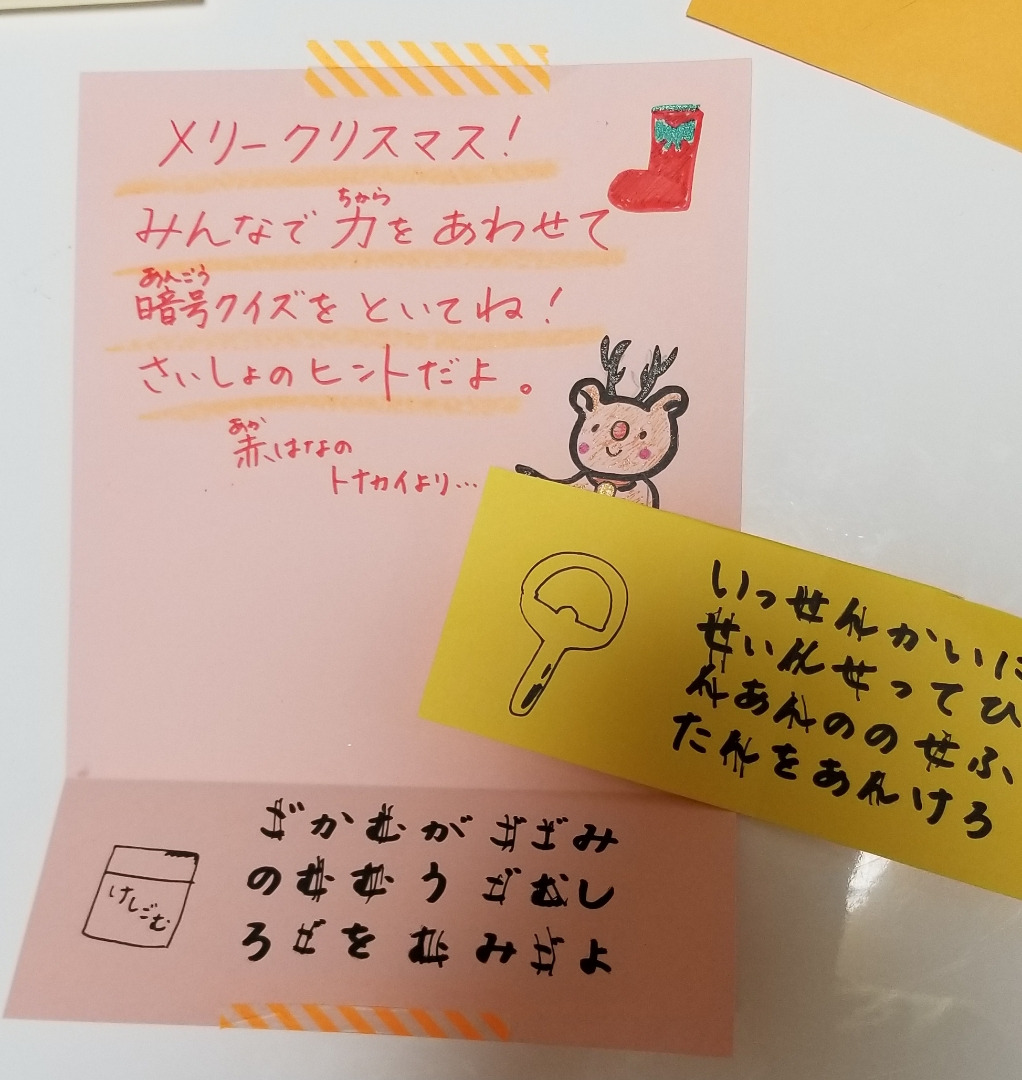 メリークリスマス！
ちから
みんなで力をあわせて
あんごう
暗号クイズをといてね！
さいしょのヒントだよ。
あか
赤はなの
トナカイより…
いっせんかいに
せいんせってひ
んあんののせふ
たんをあんけろ
けしごむ
ごかむがごごみ
のむむうごむし
ろごをむみごよ